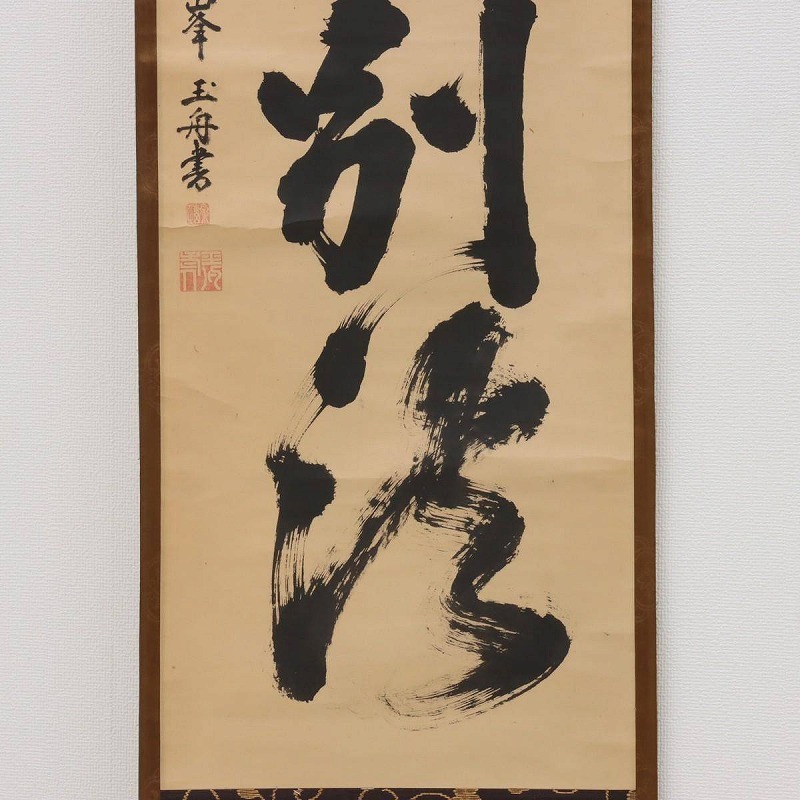 別法
峯 玉舟書